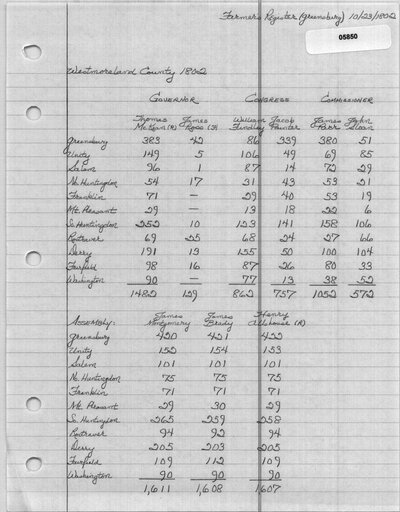 Farmer's Register (Greensburg) 10/23/1802
05850
Westmoreland County 1802
GOVERNOR CONGRESS COMMISSIONER
Thomas James William Jacob James John
McKean (R) Ross (F) Findley Painter Parr Sloan
Greensburg 383 42 86 339 380 51
Unity 149 5 106 49 69 85
Salem 96 1 87 14 72 29
No. Huntingdon 54 17 31 43 53 21
Franklin 71 — 29 40 53 19
Mt. Pleasant 29 — 13 18 22 6
So. Huntingdon 252 10 123 141 158 106
Rostraver 69 25 68 24 27 66
Derry 191 13 155 50 100 104
Fairfield 98 16 87 26 80 33
Washington 90 — 77 13 38 52
1482 129 862 757 1052 572
ASSEMBLY: James James Henry
Montgomery Brady Allshouse (R)
Greensburg 420 421 422
Unity 152 154 153
Salem 101 101 101
No. Huntingdon 75 75 75
Franklin 71 71 71
Mt. Pleasant 29 30 29
So. Huntingdon 265 259 258
Rostraver 94 92 94
Derry 205 203 205
Fairfield 109 112 109
Washington 90 90 90
1,611 1,608 1607